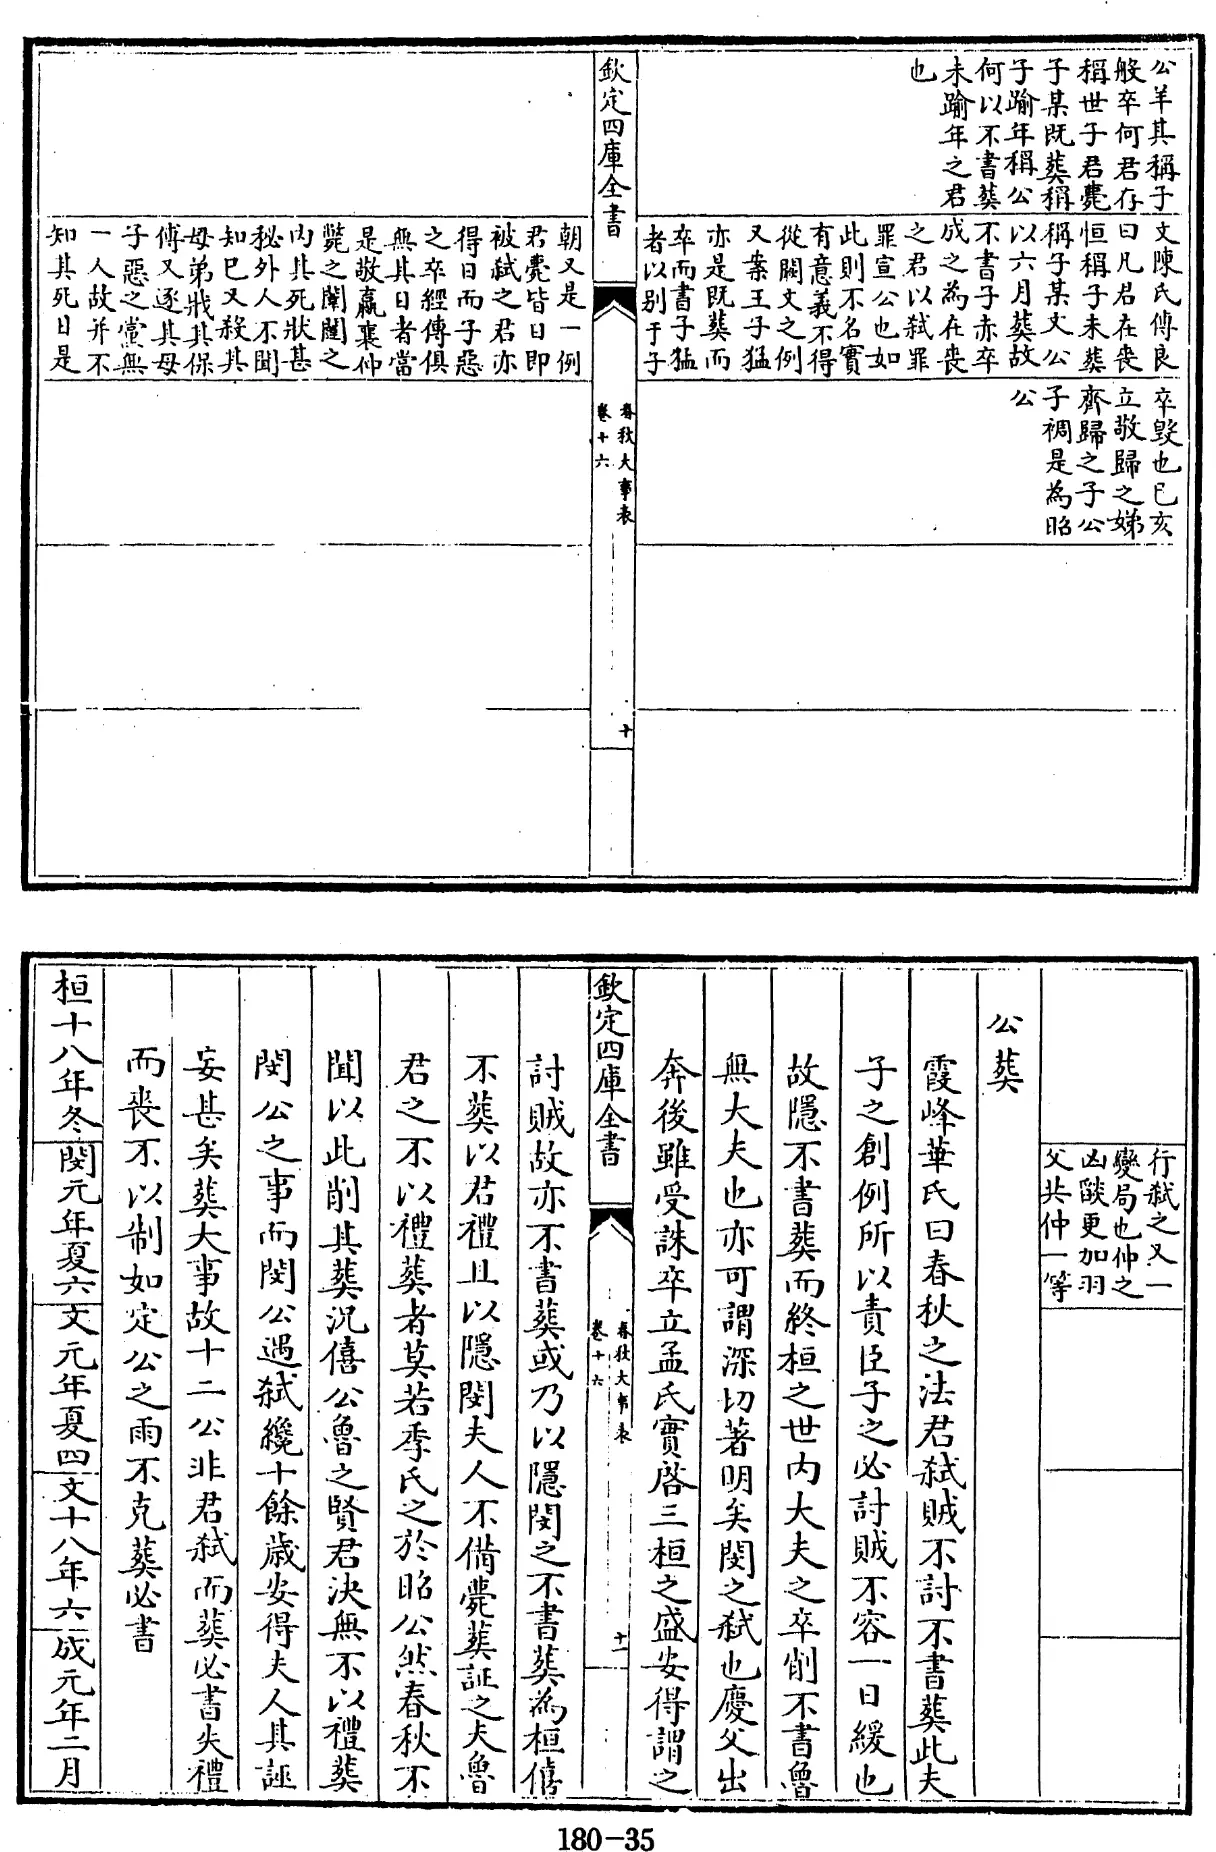 公羊其稱子
般卒何君存
稱世子君薨
子某既葬稱
子踰年稱公
何以不書葬
未踰年之君
也
文陳氏傅良
曰凡君在喪
恒稱子未葬
稱子某文公
以六月葬故
不書子赤卒
成之為在喪
之君以弑罪
罪宣公也如
此則不名實
有意義不得
從闕文之例
又案王子猛
亦是既葬而
卒而書子猛
者以别于子
卒毀也己亥
立敬歸之娣
齊歸之子公
子裯是為昭
公
欽定四庫全書
春秋大事表
卷十六
十
朝又是一例
君薨皆日即
被弑之君亦
得日而子惡
之卒經傳俱
無其日者當
是敬嬴襄仲
斃之闈闥之
内其死狀甚
秘外人不聞
知巳又殺其
母弟戕其保
傅又逐其母
子惡之黨無
一人故并不
知其死日是
行弑之又一
變局也仲之
凶燄更加羽
父共仲一等
公葬
霞峰華氏曰春秋之法君弑賊不討不書葬此夫
子之創例所以責臣子之必討賊不容一日緩也
故隱不書葬而終桓之世内大夫之卒削不書魯
無大夫也亦可謂深切著明矣閔之弑也慶父出
奔後雖受誅卒立孟氏實啓三桓之盛安得謂之
欽定四庫全書
春秋大事表
卷十六
十一
討賊故亦不書葬或乃以隱閔之不書葬為桓僖
不葬以君禮且以隱閔夫人不備薨葬証之夫魯
君之不以禮葬者莫若季氏之於昭公然春秋不
聞以此削其葬況僖公魯之賢君決無不以禮葬
閔公之事而閔公遇弑纔十餘歳安得夫人其誣
妄甚矣葬大事故十二公非君弑而葬必書失禮
而喪不以制如定公之雨不克葬必書
桓十八年冬
閔元年夏六
文元年夏四
文十八年六
成元年二月
180-35